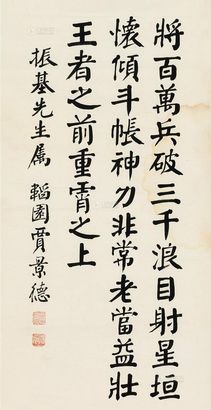 將百萬兵破三千浪目射星垣
懷傾斗帳神力非常老當益壯
王者之前重霄之上
振基先生属 韜園賈景德